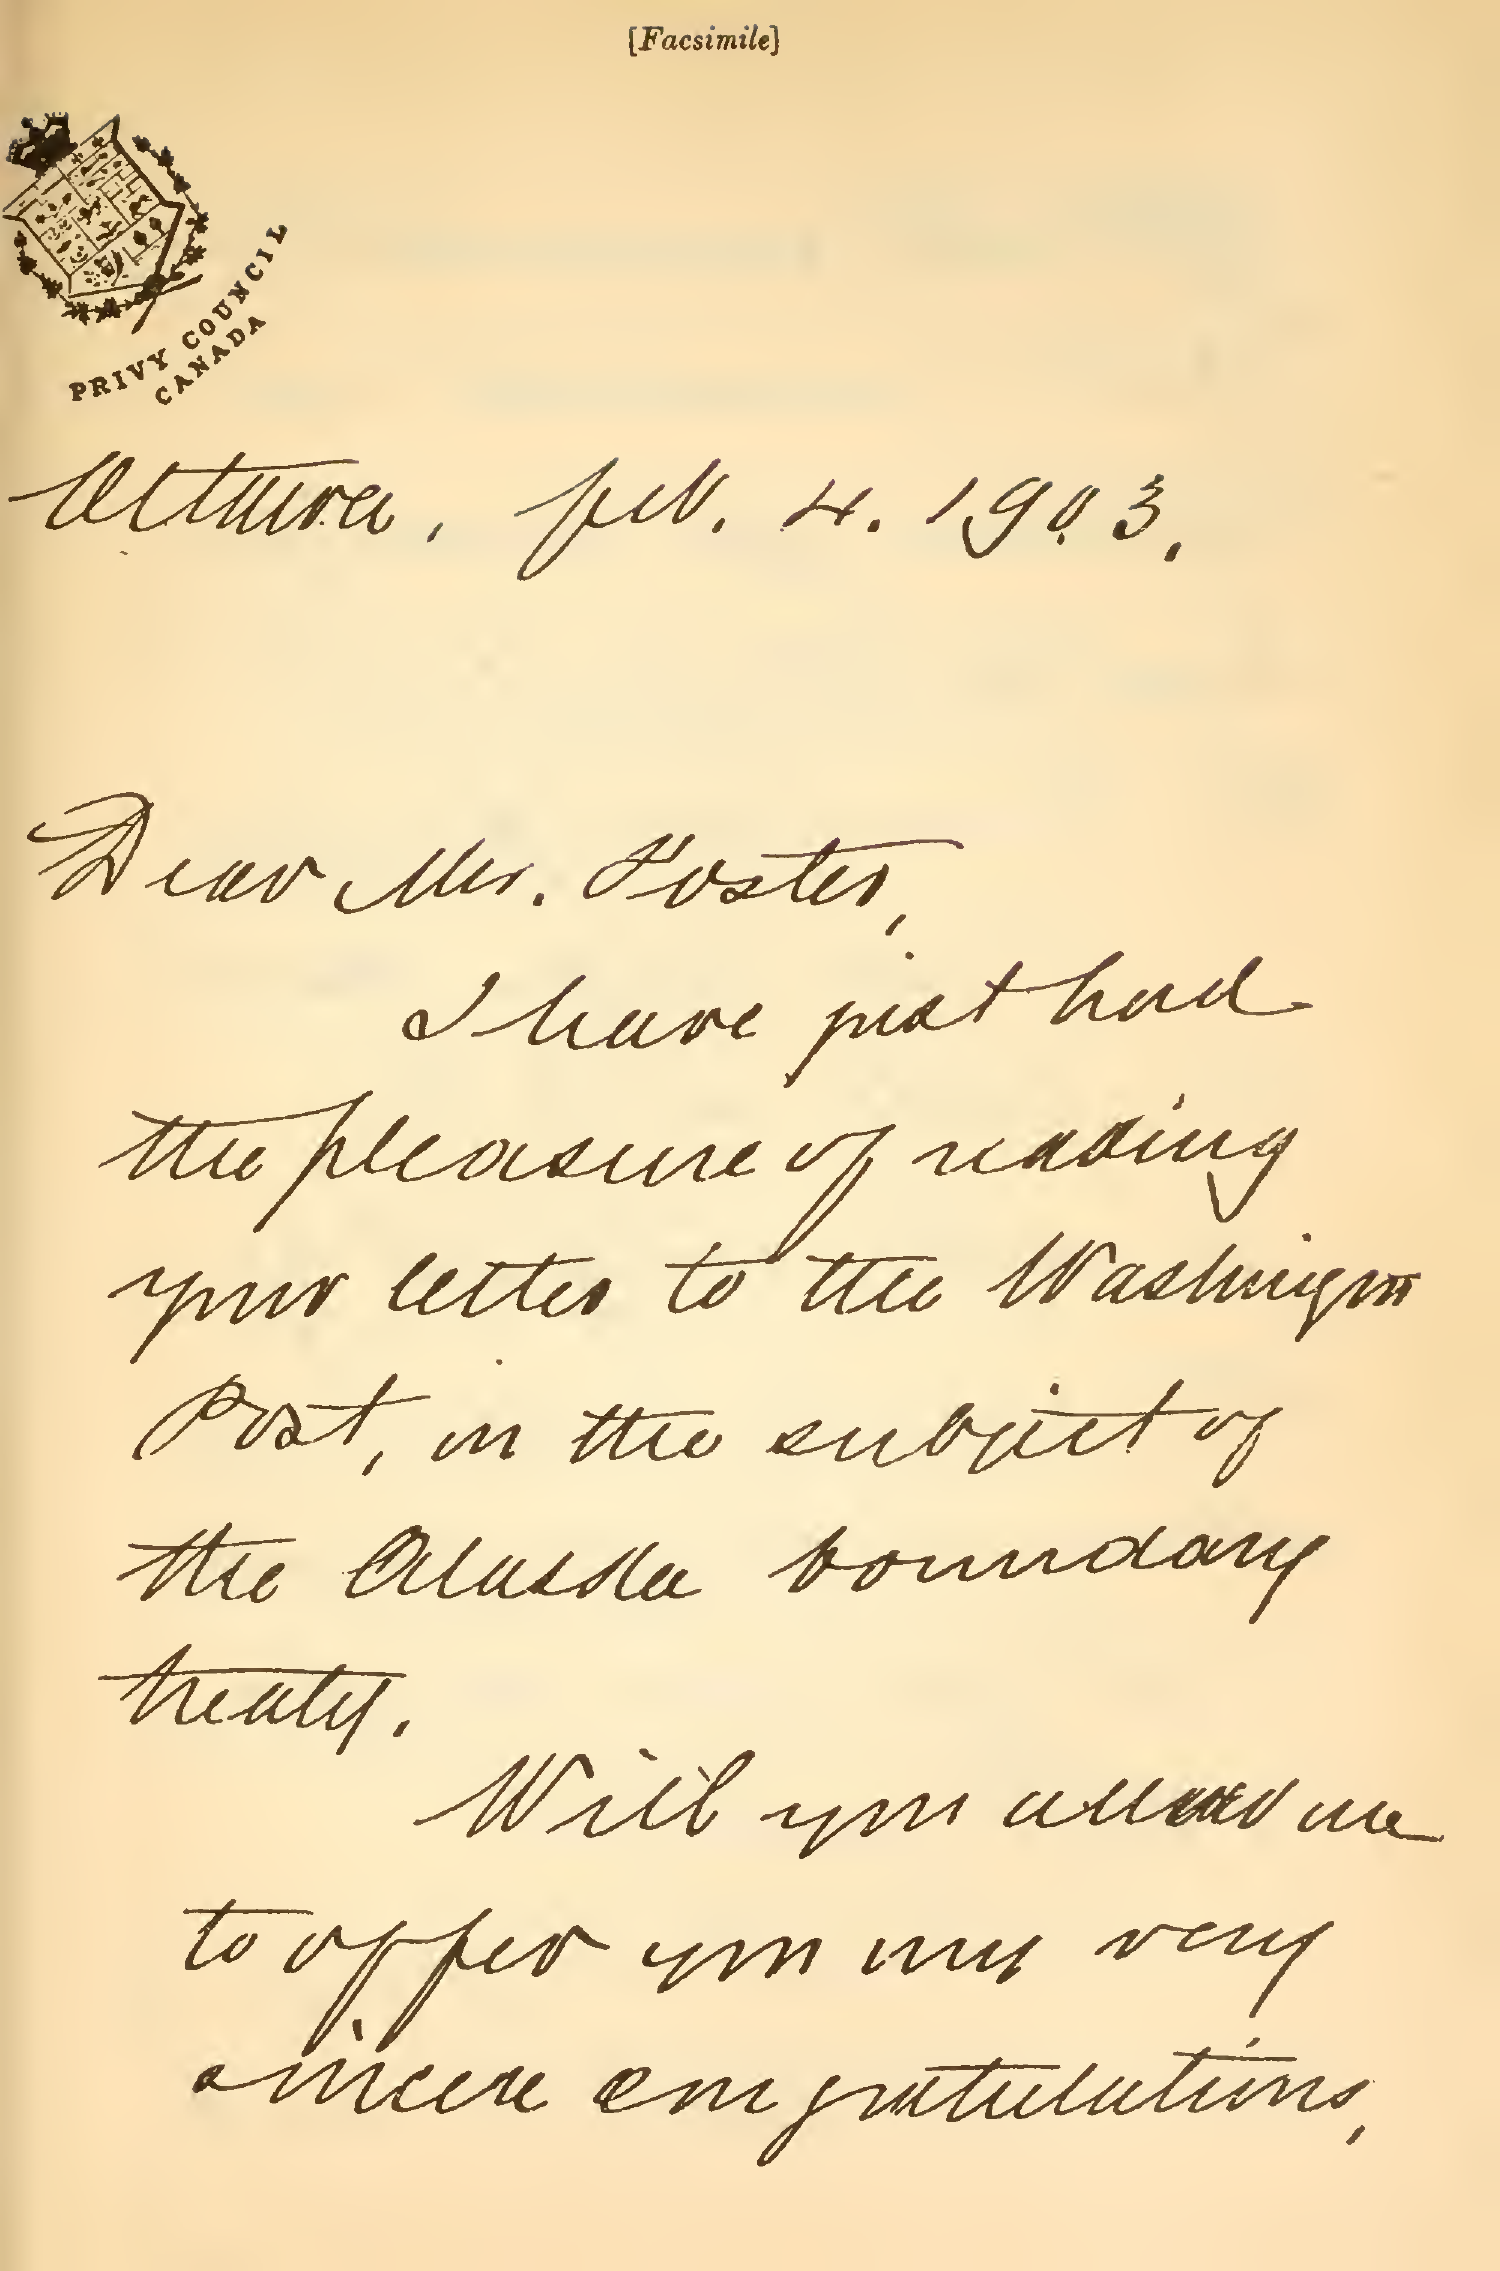 [Facsimile]
PRIVY COUNCIL
CANADA
Ottawa, feb. 4. 1903.
Dear Mr. Foster,
I have just had
the pleasure of reading
your letter to the Washington
Post, on the subject of
the Alaska boundary
treaty.
Will you allow me
to offer you my very
sincere congratulations,